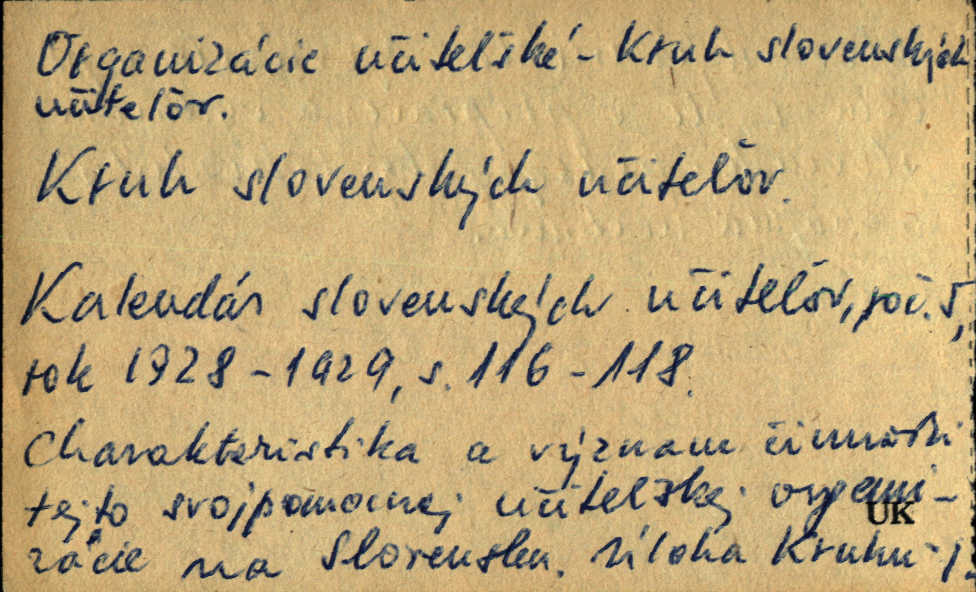 Organizácie učiteľské - Kruh slovenských
učiteľov.
Kruh slovenských učiteľov.
Kalendár slovenských učiteľov, roč. 5,
rok 1928-1929, s. 116-118.
Charakteristika a význam činnosti
tejto svojpomocnej učiteľskej organi-
zácie na Slovensku. Úloha Kruhu /.
UK